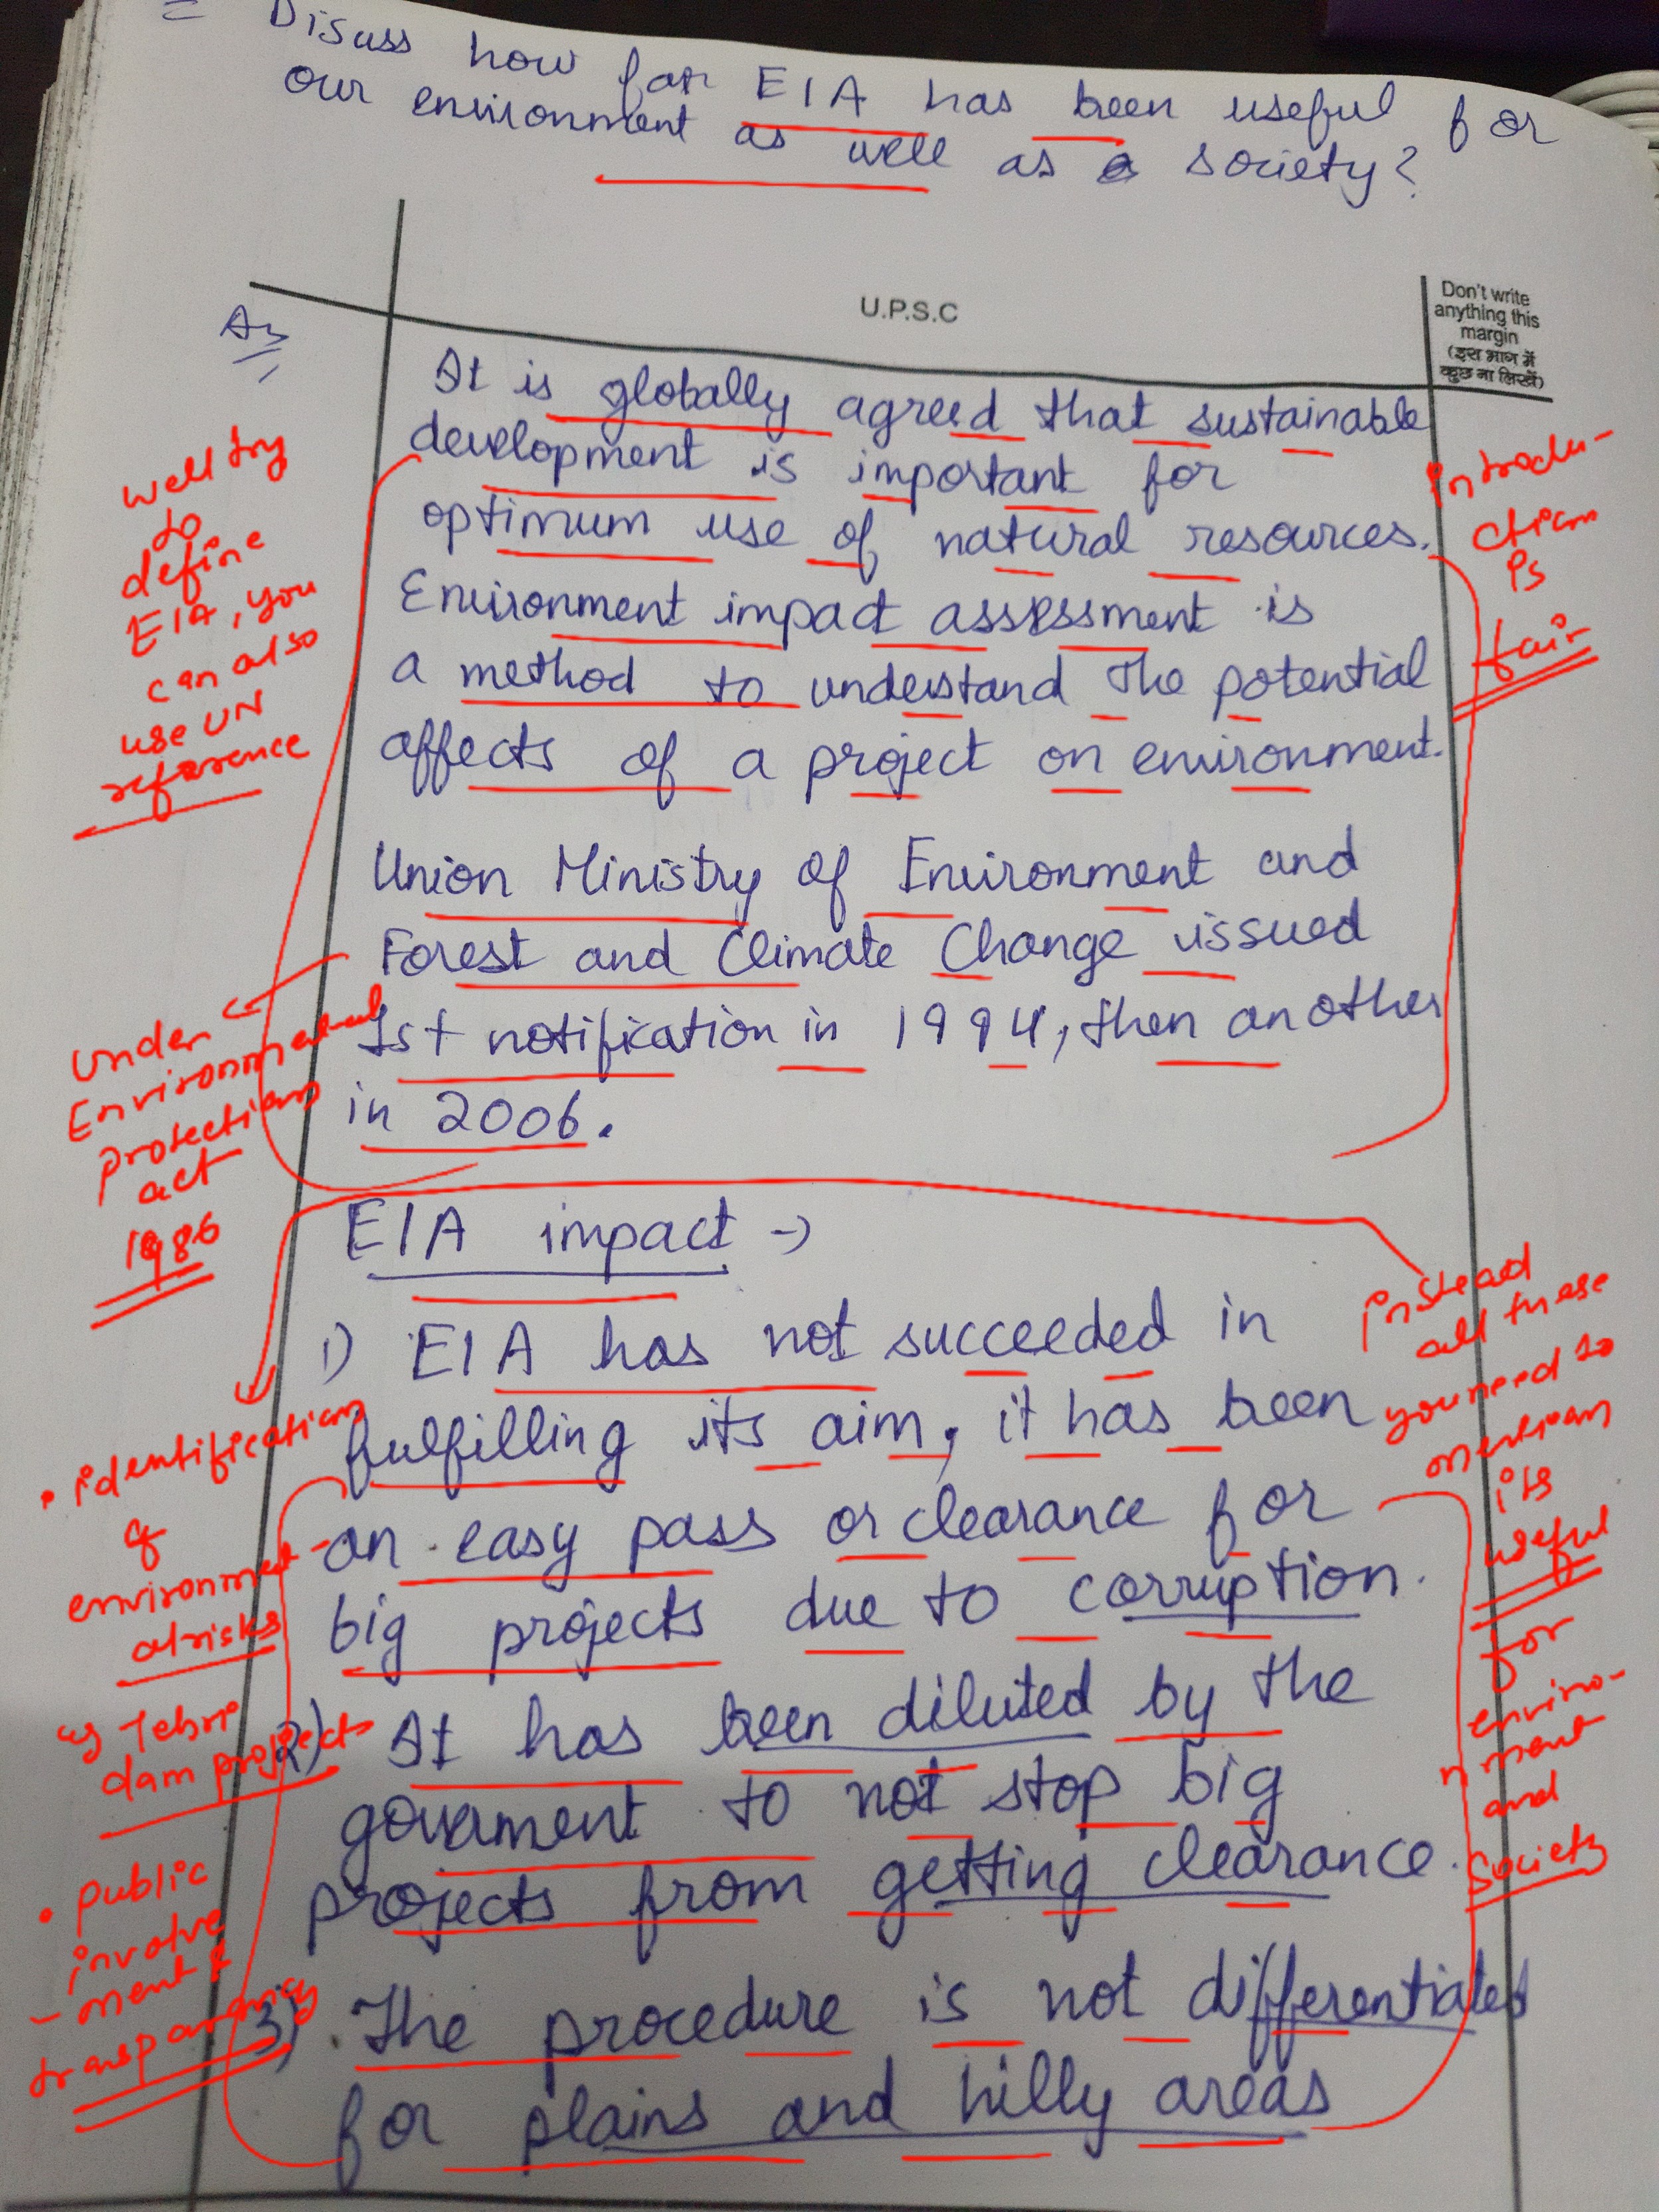 = Disuss how far EIA has been useful for
our environment as well as a society?
U.P.S.C
Don't write
anything this
margin
(इस भाग में
कुछ ना लिखें)
A3
It is globally agreed that sustainable
development is important for
optimum use of natural resources.
Environment impact assessment is
a method to understand the potential
affects of a project on environment.
Union Ministry of Environment and
Forest and Climate Change issued
1st notification in 1994, then another
in 2006.
EIA impact →
1) EIA has not succeeded in
fulfilling its aim, it has been
an easy pass or clearance for
big projects due to corruption.
2) It has been diluted by the
government to not stop big
projects from getting clearance.
3) The procedure is not differentiated
for plains and hilly areas
well try
to
define
EIA, you
can also
use UN
reference
under
Environmental
protection
act
1986
• identification
of
environment-
al risks
eg Tehri
dam project
• public
involve
- ment &
transparancy
introdu-
ction
is
fair
instead
all these
you need to
mention
its
useful
for
enviro-
nment
and
society